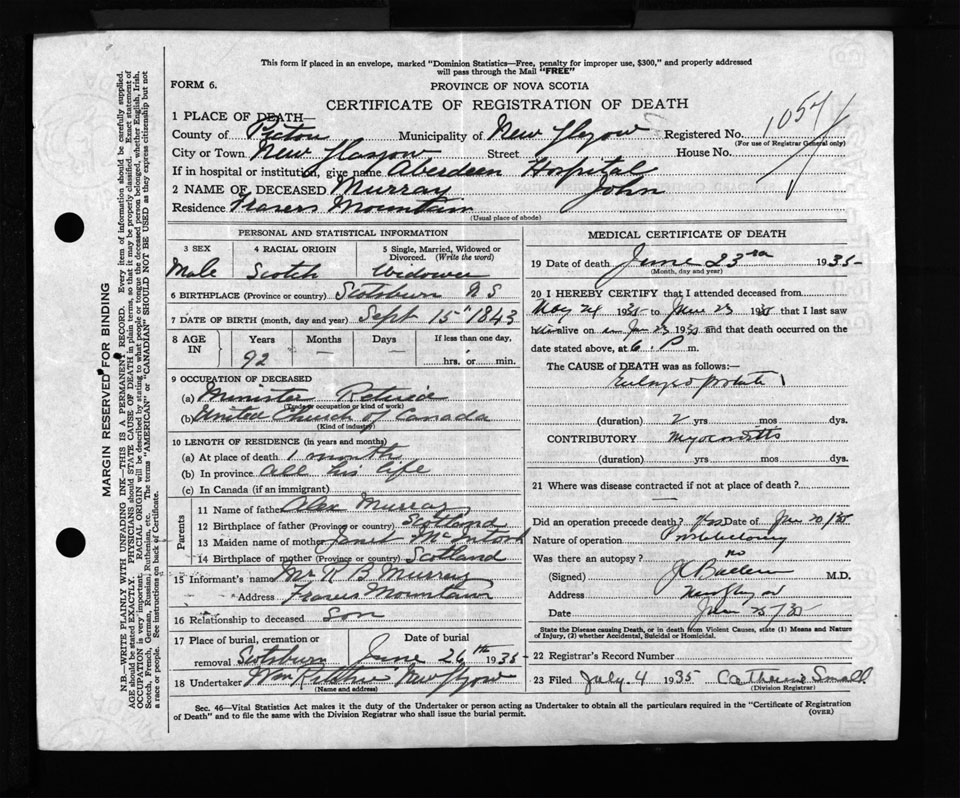 This form if placed in an envelope, marked "Dominion Statistics—Free, penalty for improper use, $300," and properly addressed
will pass through the Mail "FREE"
FORM 6.
PROVINCE OF NOVA SCOTIA
CERTIFICATE OF REGISTRATION OF DEATH
1 PLACE OF DEATH—
County of Pictou Municipality of New Glasgow Registered No. 1057
(For use of Registrar General only)
City or Town New Glasgow Street House No.
If in hospital or institution, give name Aberdeen Hospital
2 NAME OF DECEASED Murray John
Residence Frasers Mountain
(Usual place of abode)
PERSONAL AND STATISTICAL INFORMATION
3 SEX 4 RACIAL ORIGIN 5 Single, Married, Widowed or Divorced. (Write the word)
Male Scotch Widower
6 BIRTHPLACE (Province or country) Scotsburn N S
7 DATE OF BIRTH (month, day and year) Sept 15" 1843
8 AGE IN Years Months Days If less than one day,
92 — — hrs. or min.
9 OCCUPATION OF DECEASED
(a) Minister Retired
(Trade or occupation or kind of work)
(b) United Church of Canada
(Kind of industry)
10 LENGTH OF RESIDENCE (in years and months)
(a) At place of death 1 month
(b) In province all his life
(c) In Canada (if an immigrant)
Parents
11 Name of father Alex Murray
12 Birthplace of father (Province or country) Scotland
13 Maiden name of mother Janet McIntosh
14 Birthplace of mother (Province or country) Scotland
15 Informant's name Mr R B Murray
Address Frasers Mountain
16 Relationship to deceased Son
17 Place of burial, cremation or removal Scotsburn Date of burial June 26th 1935
18 Undertaker Wm New Glasgow
(Name and address)
MEDICAL CERTIFICATE OF DEATH
19 Date of death June 23rd 1935
(Month, day and year)
20 I HEREBY CERTIFY that I attended deceased from
May 24 1935 to June 23 1935 that I last saw
h alive on June 23 1935 and that death occurred on
date stated above, at 6 P m.
The CAUSE of DEATH was as follows:—
(duration) 2 yrs mos dys.
CONTRIBUTORY Myocarditis
(duration) yrs mos dys.
21 Where was disease contracted if not at place of death?
Did an operation precede death? Yes Date of June 20/35
Nature of operation
Was there an autopsy? no
(Signed) M.D.
Address New Glasgow
Date June 25/35
State the Disease causing Death, or in death from Violent Causes, state (1) Means and Nature
of Injury, (2) whether Accidental, Suicidal or Homicidal.
22 Registrar's Record Number
23 Filed July 4 1935 Catherine Small
(Division Registrar)
Sec. 46—Vital Statistics Act makes it the duty of the Undertaker or person acting as Undertaker to obtain all the particulars required in the "Certificate of Registration
of Death" and to file the same with the Division Registrar who shall issue the burial permit.
(OVER)
MARGIN RESERVED FOR BINDING
N.B.—WRITE PLAINLY WITH UNFADING INK—THIS IS A PERMANENT RECORD. Every item of information should be carefully supplied.
AGE should be stated EXACTLY. PHYSICIANS should STATE CAUSE OF DEATH in plain terms, so that it may be properly classified. Exact statement of
OCCUPATION is very important. RACIAL ORIGIN will be described by stating to what people or tongue the deceased person belonged, whether English, Irish,
Scotch, French, German, Russian, Ruthenian, etc. The terms "AMERICAN" or "CANADIAN" SHOULD NOT BE USED as they express citizenship but not
a race or people. See instructions on back of Certificate.